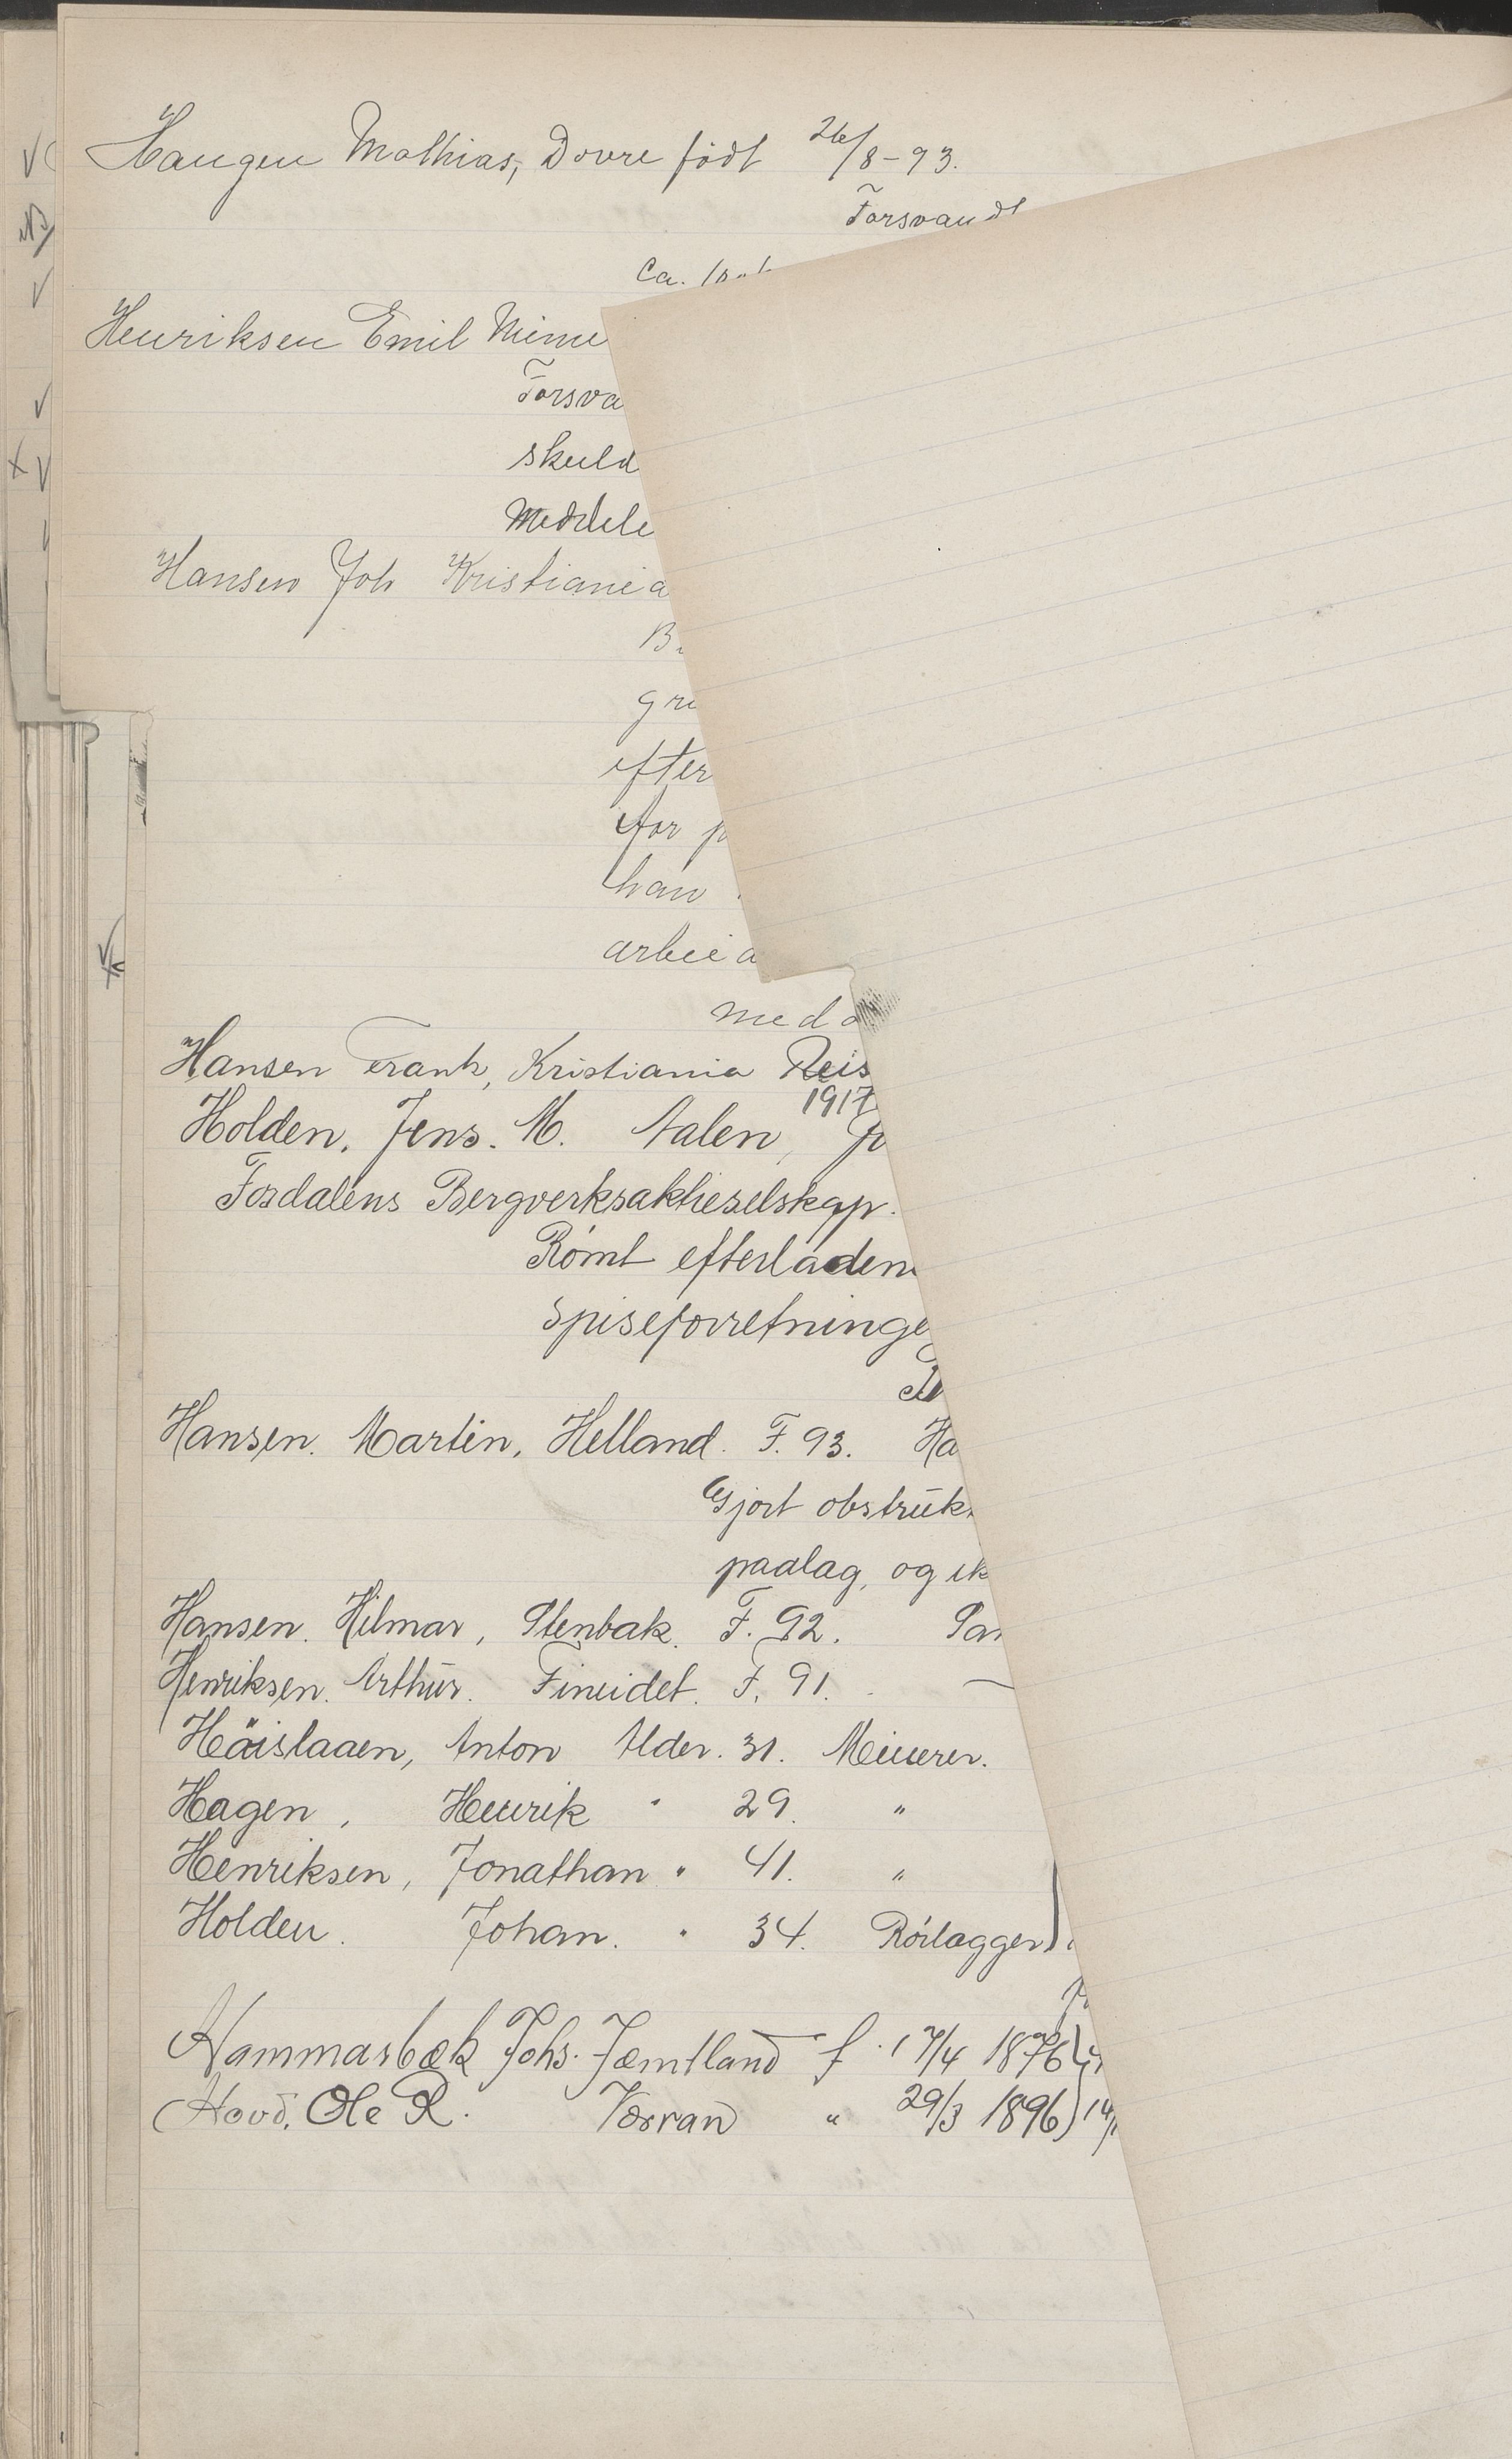 Haugen Mathias, Dovre født 26/8-93.
Forsvandt
Ca.
Henriksen Emil
Forsva
skuld
Meddele
Hansen Joh Kristiania
B
gru
efter
for p
han
arbeid
med
Hansen Frank, Kristiania Reis
1917
Holden, Jens. M. Aalen,
Fosdalens Bergverksaktieselskap.
Rømt efterladen
spiseforretninge
Hansen. Martin, Helland. F. 93. Ha
Gjort obstruk
paalag, og ik
Hansen. Hilmar, Stenbak. F. 92. Sam
Henriksen. Arthur. Fineidet. F. 91. —
Høislaaen, Anton Alder. 31. Minerer.
Hagen, Henrik " 29. "
Henriksen, Jonathan " 41. "
Holden. Johan. " 34. Rørlægger
Hammarbæk Johs. Jæmtland f. 17/4 1876
Hovd, Ole R. Værran " 29/3 1896) 14/